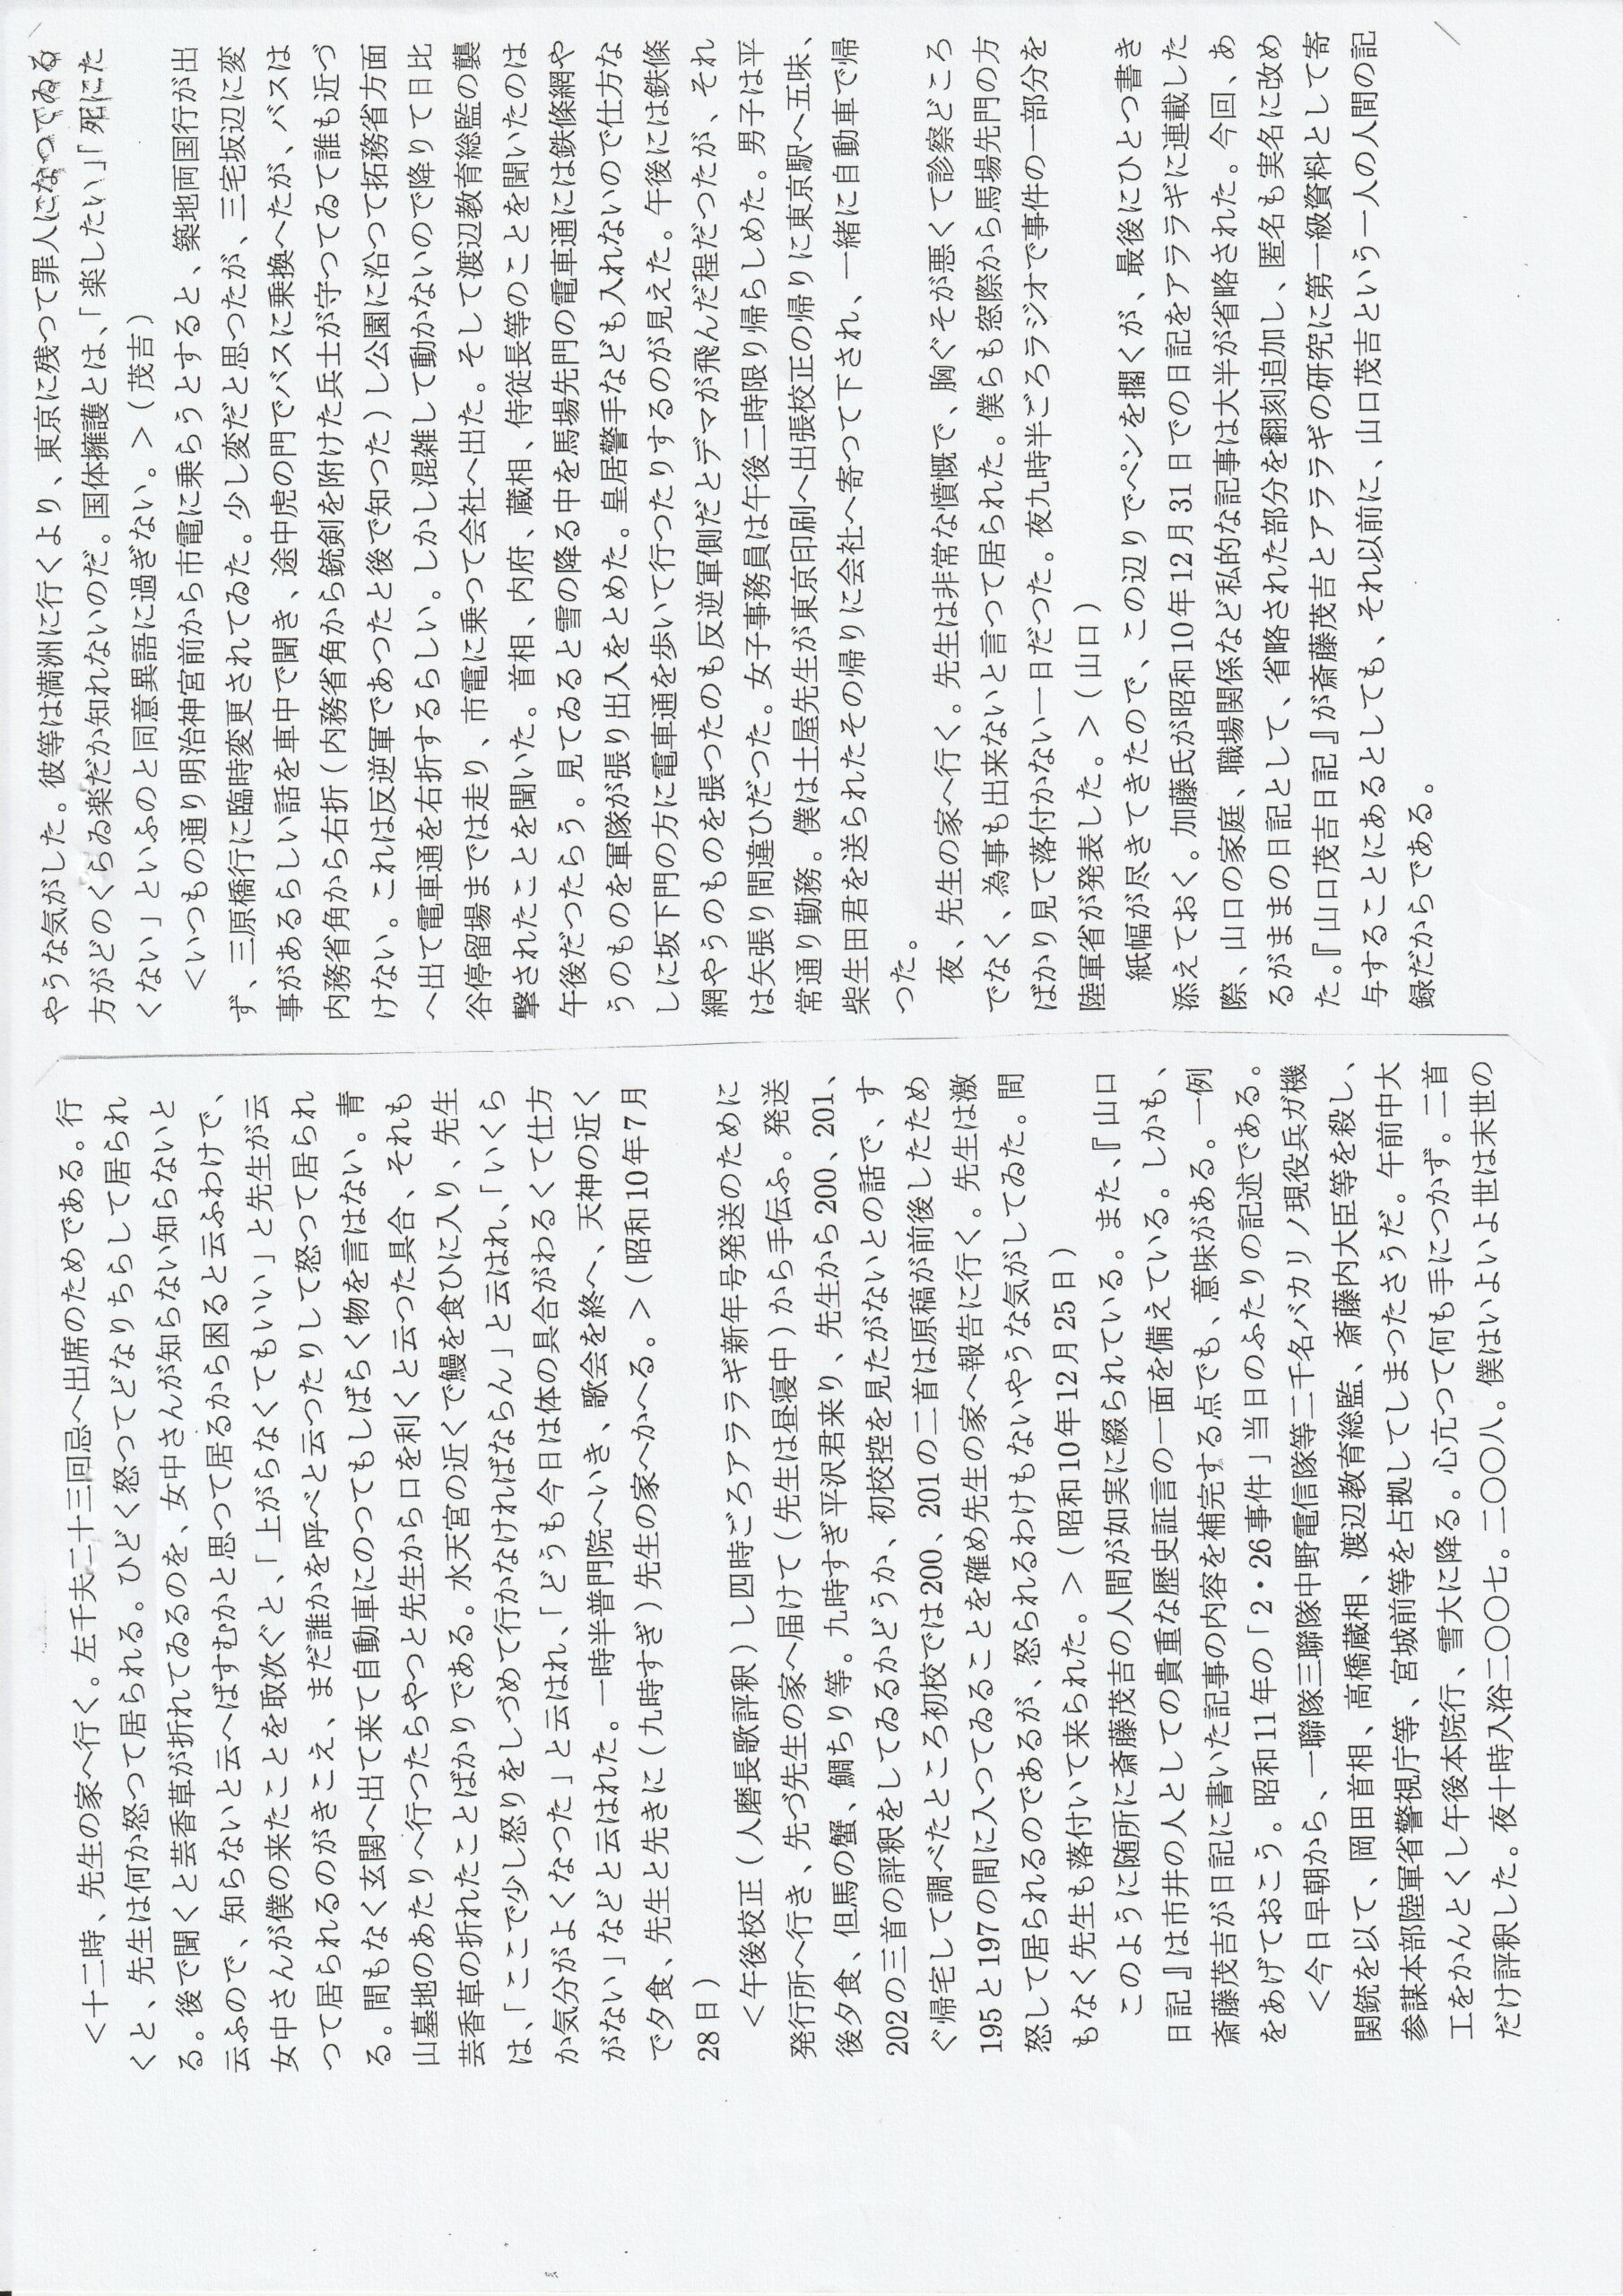 ＜十二時、先生の家へ行く。左千夫二十三回忌へ出席のためである。行
くと、先生は何か怒つて居られる。ひどく怒つてどなりちらして居られ
る。後で聞くと芸香草が折れてゐるのを、女中さんが知らない知らないと
云ふので、知らないと云へばすむかと思つて居るから困ると云ふわけで、
女中さんが僕の来たことを取次ぐと、「上がらなくてもいい」と先生が云
つて居られるのがきこえ、まだ誰かを呼べと云つたりして怒つて居られ
る。間もなく玄関へ出て来て自動車にのつてもしばらく物を言はない。青
山墓地のあたりへ行つたらやつと先生から口を利くと云つた具合、それも
芸香草の折れたことばかりである。水天宮の近くで鰻を食ひに入り、先生
は、「ここで少し怒りをしづめて行かなければならん」と云はれ、「いくら
か気分がよくなつた」と云はれ、「どうも今日は体の具合がわるくて仕方
がない」などと云はれた。一時半普門院へいき、歌会を終へ、天神の近く
で夕食、先生と先きに（九時すぎ）先生の家へかへる。＞（昭和10年7月
28日）
＜午後校正（人麿長歌評釈）し四時ごろアララギ新年号発送のために
発行所へ行き、先づ先生の家へ届けて（先生は昼寝中）から手伝ふ。発送
後夕食、但馬の蟹、鯛ちり等。九時すぎ平沢君来り、先生から200、201、
202の三首の評釈をしてゐるかどうか、初校控を見たがないとの話で、す
ぐ帰宅して調べたところ初校では200、201の二首は原稿が前後したため
195と197の間に入つてゐることを確め先生の家へ報告に行く。先生は激
怒して居られるのであるが、怒られるわけもないやうな気がしてゐた。間
もなく先生も落付いて来られた。＞（昭和10年12月25日）
このように随所に斎藤茂吉の人間が如実に綴られている。また、『山口
日記』は市井の人としての貴重な歴史証言の一面を備えている。しかも、
斎藤茂吉が日記に書いた記事の内容を補完する点でも、意味がある。一例
をあげておこう。昭和11年の「2・26事件」当日のふたりの記述である。
＜今日早朝から、一聯隊三聯隊中野電信隊等二千名バカリノ現役兵ガ機
関銃を以て、岡田首相、高橋蔵相、渡辺教育総監、斎藤内大臣等を殺し、
参謀本部陸軍省警視庁等、宮城前等を占拠してしまつたさうだ。午前中大
工をかんとくし午後本院行、雪大に降る。心亢つて何も手につかず。二首
だけ評釈した。夜十時入浴二〇〇七。二〇〇八。僕はいよいよ世は末世の
やうな気がした。彼等は満洲に行くより、東京に残つて罪人になつてゐる
方がどのくらゐ楽だか知れないのだ。国体擁護とは、「楽したい」「死にた
くない」といふのと同意異語に過ぎない。＞（茂吉）
＜いつもの通り明治神宮前から市電に乗らうとすると、築地両国行が出
ず、三原橋行に臨時変更されてゐた。少し変だと思つたが、三宅坂辺に変
事があるらしい話を車中で聞き、途中虎の門でバスに乗換へたが、バスは
内務省角から右折（内務省角から銃剣を附けた兵士が守つてゐて誰も近づ
けない。これは反逆軍であつたと後で知つた）し公園に沿つて拓務省方面
へ出て電車通を右折するらしい。しかし混雑して動かないので降りて日比
谷停留場までは走り、市電に乗つて会社へ出た。そして渡辺教育総監の襲
撃されたことを聞いた。首相、内府、蔵相、侍従長等のことを聞いたのは
午後だつたらう。見てゐると雪の降る中を馬場先門の電車通には鉄條網や
うのものを軍隊が張り出入をとめた。皇居警手なども入れないので仕方な
しに坂下門の方に電車通を歩いて行つたりするのが見えた。午後には鉄條
網やうのものを張つたのも反逆軍側だとデマが飛んだ程だつたが、それ
は矢張り間違ひだつた。女子事務員は午後二時限り帰らしめた。男子は平
常通り勤務。僕は土屋先生が東京印刷へ出張校正の帰りに東京駅へ五味、
柴生田君を送られたその帰りに会社へ寄つて下され、一緒に自動車で帰
つた。
夜、先生の家へ行く。先生は非常な憤慨で、胸ぐそが悪くて診察どころ
でなく、為事も出来ないと言つて居られた。僕らも窓際から馬場先門の方
ばかり見て落付かない一日だつた。夜九時半ごろラジオで事件の一部分を
陸軍省が発表した。＞（山口）
紙幅が尽きてきたので、この辺りでペンを擱くが、最後にひとつ書き
添えておく。加藤氏が昭和10年12月31日での日記をアララギに連載した
際、山口の家庭、職場関係など私的な記事は大半が省略された。今回、あ
るがままの日記として、省略された部分を翻刻追加し、匿名も実名に改め
た。『山口茂吉日記』が斎藤茂吉とアララギの研究に第一級資料として寄
与することにあるとしても、それ以前に、山口茂吉という一人の人間の記
録だからである。